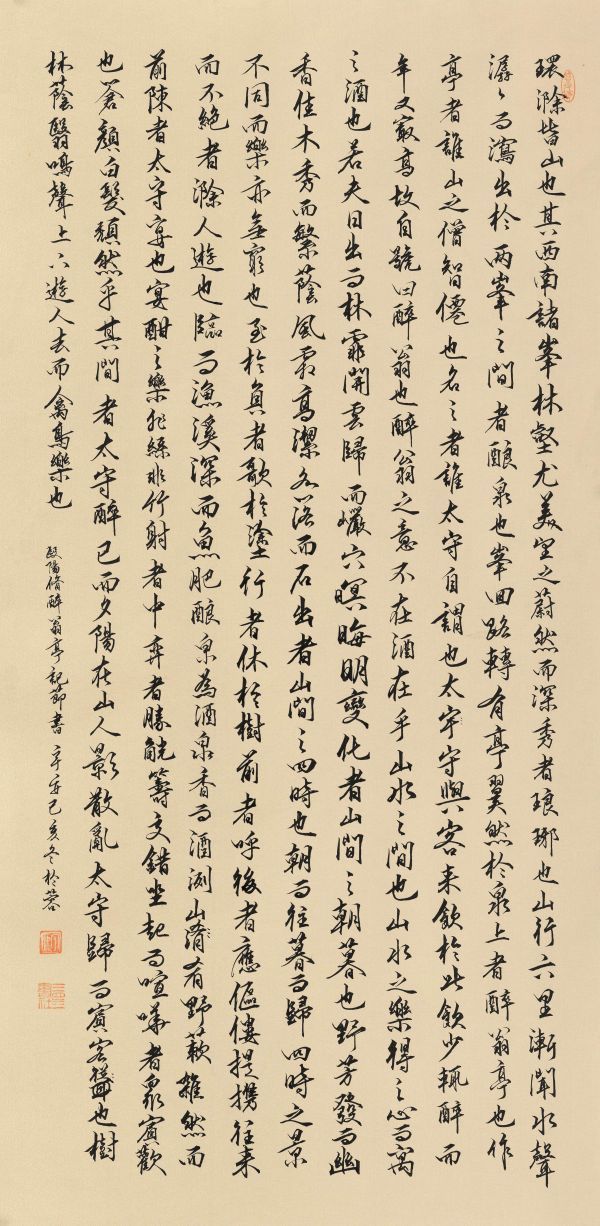 環滁皆山也其西南諸峯林壑尤美望之蔚然而深秀者琅琊也山行六里漸聞水聲
潺々而瀉出於兩峯之間者釀泉也峯回路轉有亭翼然於泉上者醉翁亭也作
亭者誰山之僧智僊也名之者誰太守自謂也太守與客來飲於此飲少輒醉而
年又最高故自號曰醉翁也醉翁之意不在酒在乎山水之間也山水之樂得之心而寓
之酒也若夫日出而林霏開雲歸而巖穴暝晦明變化者山間之朝暮也野芳發而幽
香佳木秀而繁蔭風霜高潔水落而石出者山間之四時也朝而往暮而歸四時之景
不同而樂亦無窮也至於負者歌於塗行者休於樹前者呼後者應傴僂提攜往來
而不絕者滁人遊也臨而漁溪深而魚肥釀泉為酒泉香而酒洌山肴野蔌雜然而
前陳者太守宴也宴酣之樂非絲非竹射者中弈者勝觥籌交錯坐起而喧嘩者衆賓歡
也蒼顏白髮頹然乎其間者太守醉已而夕陽在山人影散亂太守歸而賓客從也樹
林蔭翳鳴聲上下遊人去而禽鳥樂也
歐陽脩醉翁亭記節書 己亥冬於蓉